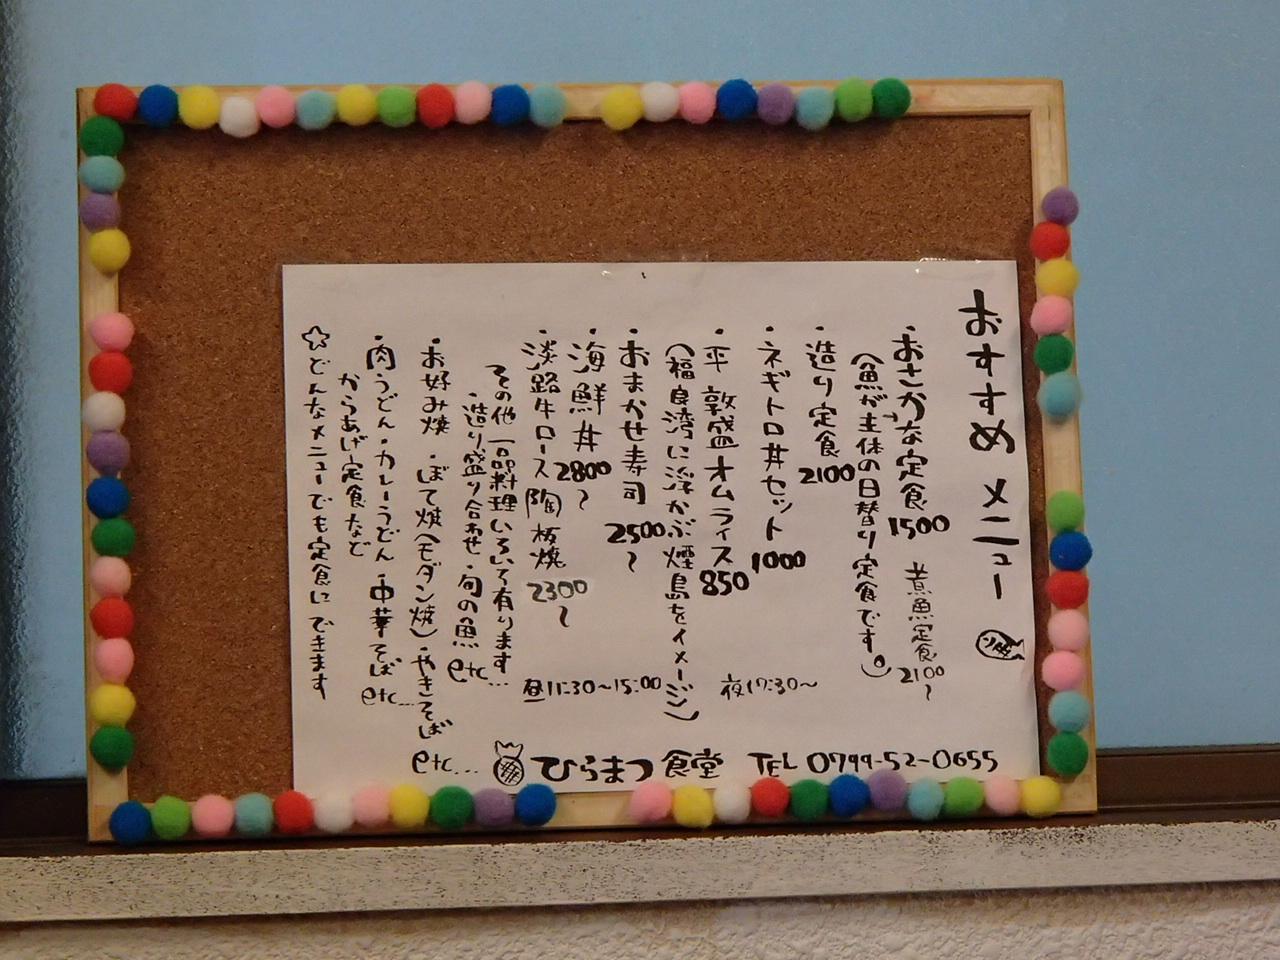 おすすめメニュー
・おさかな定食 1500 煮魚定食 2100〜
(魚が主体の日替り定食です。)
・造り定食 2100
・ネギトロ丼セット 1000
・平 敦盛オムライス 850
(福良湾に浮かぶ煙島をイメージ)
・おまかせ寿司 2500〜
・海鮮丼 2800〜
・淡路牛ロース陶板焼 2300〜
その他一品料理いろいろ有ります
・造り盛り合わせ・旬の魚 etc...
・お好み焼 ・ぼて焼(モダン焼)・やきそば etc...
・肉うどん・カレーうどん・中華そば etc...
からあげ定食など
☆どんなメニューでも定食にできます
昼11:30〜15:00 夜17:30〜
ひらまつ食堂 TEL 0799-52-0655